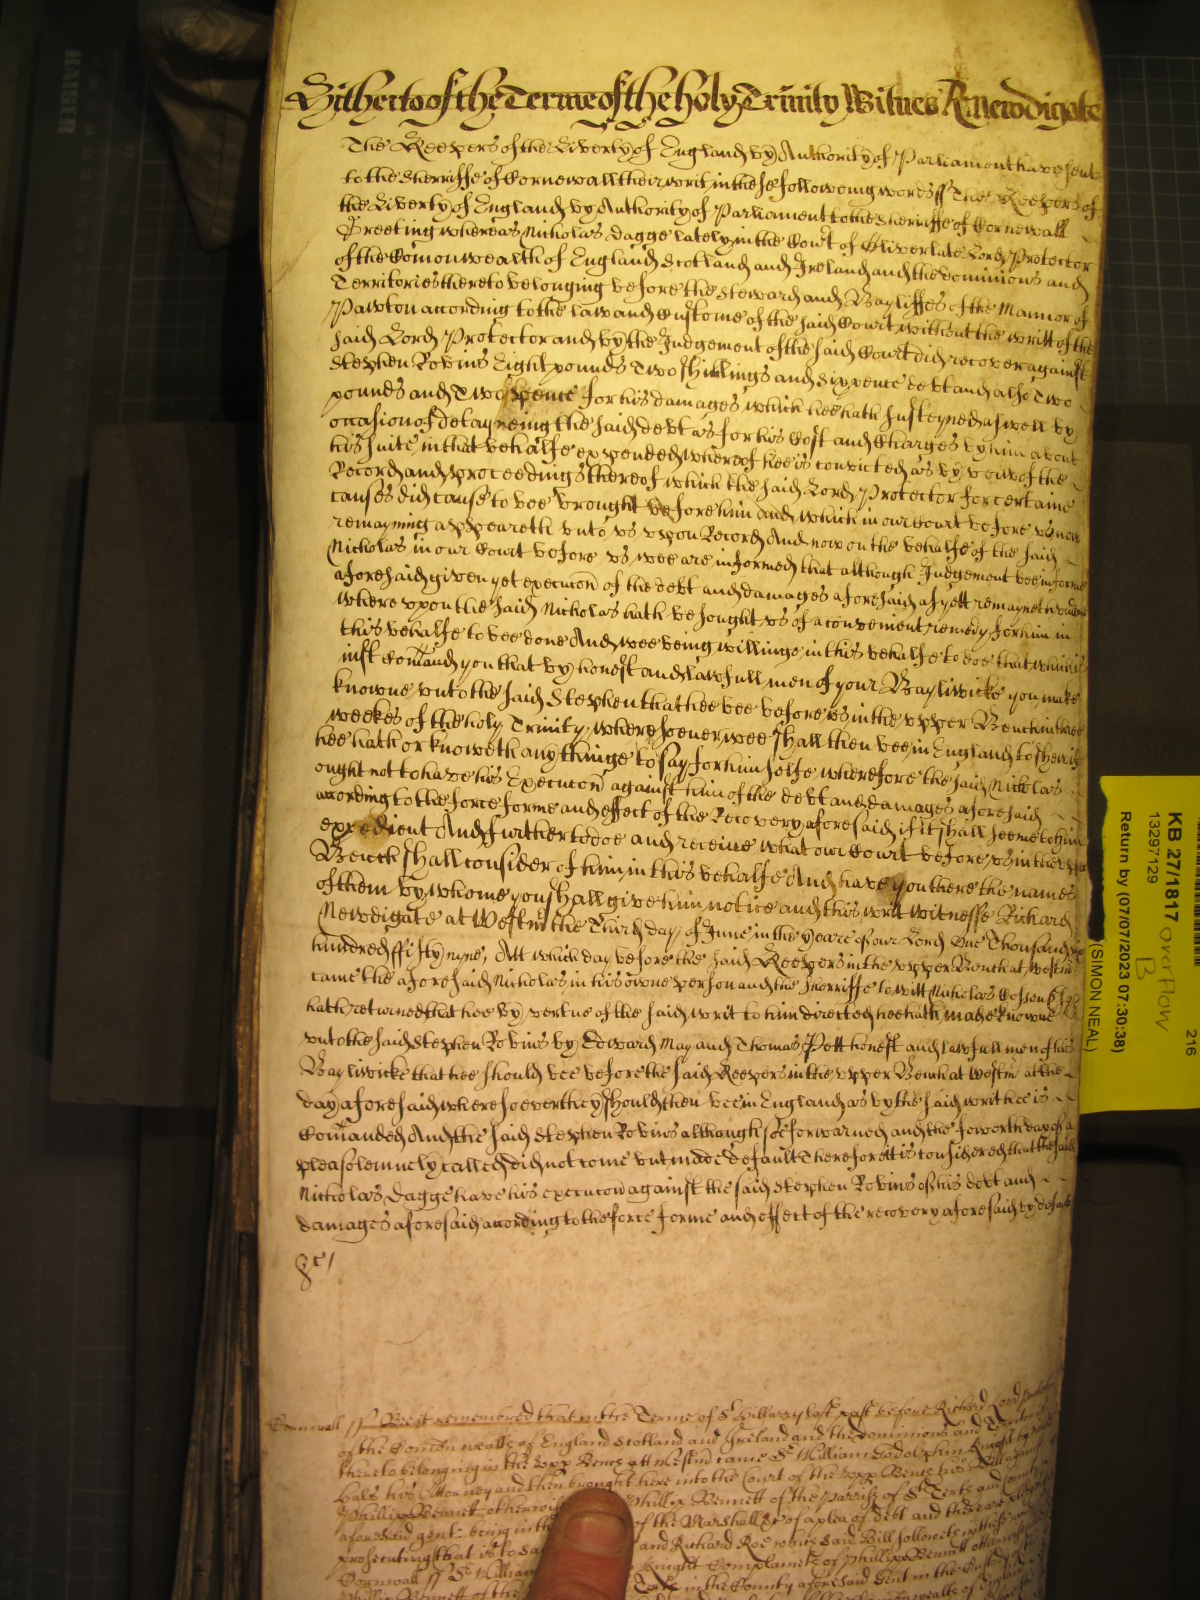 Hitherto of the Terme of the holy Trinity Witnes R Newdigate
The Keepers of the Liberty of England by Authority of Parliament have sent
to the Sherriffe of Cornewall their writ in these following words ss The Keepers of
the Liberty of England by Authority of Parliament to the Sherriffe of Cornewall
Greeting whereas Nicholas Dagge lately in the Court of Oliver late Lord Protector
of the Comonwealth of England Scotland and Ireland and the dominions and
Territories thereto belonging before the Steward and Bayliffes of the Mannor of
Pawton according to the law and Custome of the said Court without the writt of the
said Lord Protector and by the Judgement of the said Court did recover against
Stephen Robins Eight pounds Two shillings and sixpence debt and also Two
pounds and Two pence for his damages which hee hath susteyned aswell by
occasion of detayneing the said debt as for his Cost and Charges by him about
his suite in that behalfe expended whereof hee is convicted as by veiw of the
Record and proceedings thereof which the said Lord Protector for certaine
causes did cause to bee brought before him and which in our Court before us now
remayning appeareth unto us upon Record And now on the behalfe of the said
Nicholas in our Court before us wee are informed that although Judgement bee in forme
aforesaid given yet execucon of the debt and damages aforesaid as yett remaynes
whereupon the said Nicholas hath besought us of a convenient remedy for him in
this behalfe to bee done And wee being willinge in this behalfe to doe that which is
iust Comand you that by honest and lawfull men of your Bayliwicke you make
knowne unto the said Stephen that hee bee before us in the upper Bench in three
weekes of the holy Trinity wheresoever wee shall then bee in England to shew if
hee hath or knoweth any thinge to say for him selfe wherefore the said Nicholas
ought not to have his Execucon against him of the debt and damages aforesaid
according to the force forme and effect of the Recovery aforesaid if it shall seeme to him
expedient And further to doe and receive what our Court before us in the upper
Bench shall consider of him in this behalfe And have you there the names
of them by whome you shall give him notice and this writ witnesse Richard
Newdigate at Westm the Third day of June in the yeare of our Lord One Thousand six
hundred fifty nyne, Att which day before the said Keepers in the upper Bench at Westm
came the aforesaid Nicholas in his owne person and the Sherriffe to witt Nicholas Cossen
hath returned that hee by vertue of the said writ to him directed hee hath made knowne
unto the said Stephen Robins by Edward May and Thomas Pett honest and lawfull men of his
Bayliwicke that hee should bee before the said Keepers in the upper Bench at Westm at the
day aforesaid wheresoever they should then bee in England as by the said writ hee is
Comanded And the said Stephen Robins although soe forwarned and the fowerth day of
plea solemnely called did not come but made default Therefore itt is considered that the said
Nicholas Dagge have his execucon against the said Stephen Robins of his debt and
damages aforesaid according to the force forme and effect of the recovery aforesaid by default
&c/
Cornwall ss Bee it remembred that in the Terme of St Hillary last past before Richard Lord Protector
of the Comon wealth of England Scotland and Ireland and the Dominions and Territories
thereto belonging in the upp Bench att Westm came Sr William Godolphin Knight by
Hals his Attorney and then brought here into the Court of the upp Bench his Bill against
Phillip Bennett otherwise Phillip Bennett of the Parrish of St Teath and County
aforesaid gent being in the of the Marshall &c of a plea of debt and there are pledges
prosecuting that is to say and Richard Roe which said Bill followeth in these words
Cornwall ss Sr William Knight Complaines of Phillip Bennett otherwise
Phillip Bennett of the Teath in the County aforesaid Gent in the Custody of
KB 27/1817 overflow
B
13297129
Return by (07/07/2023 07:30:38)
(SIMON NEAL)
216
KAISER